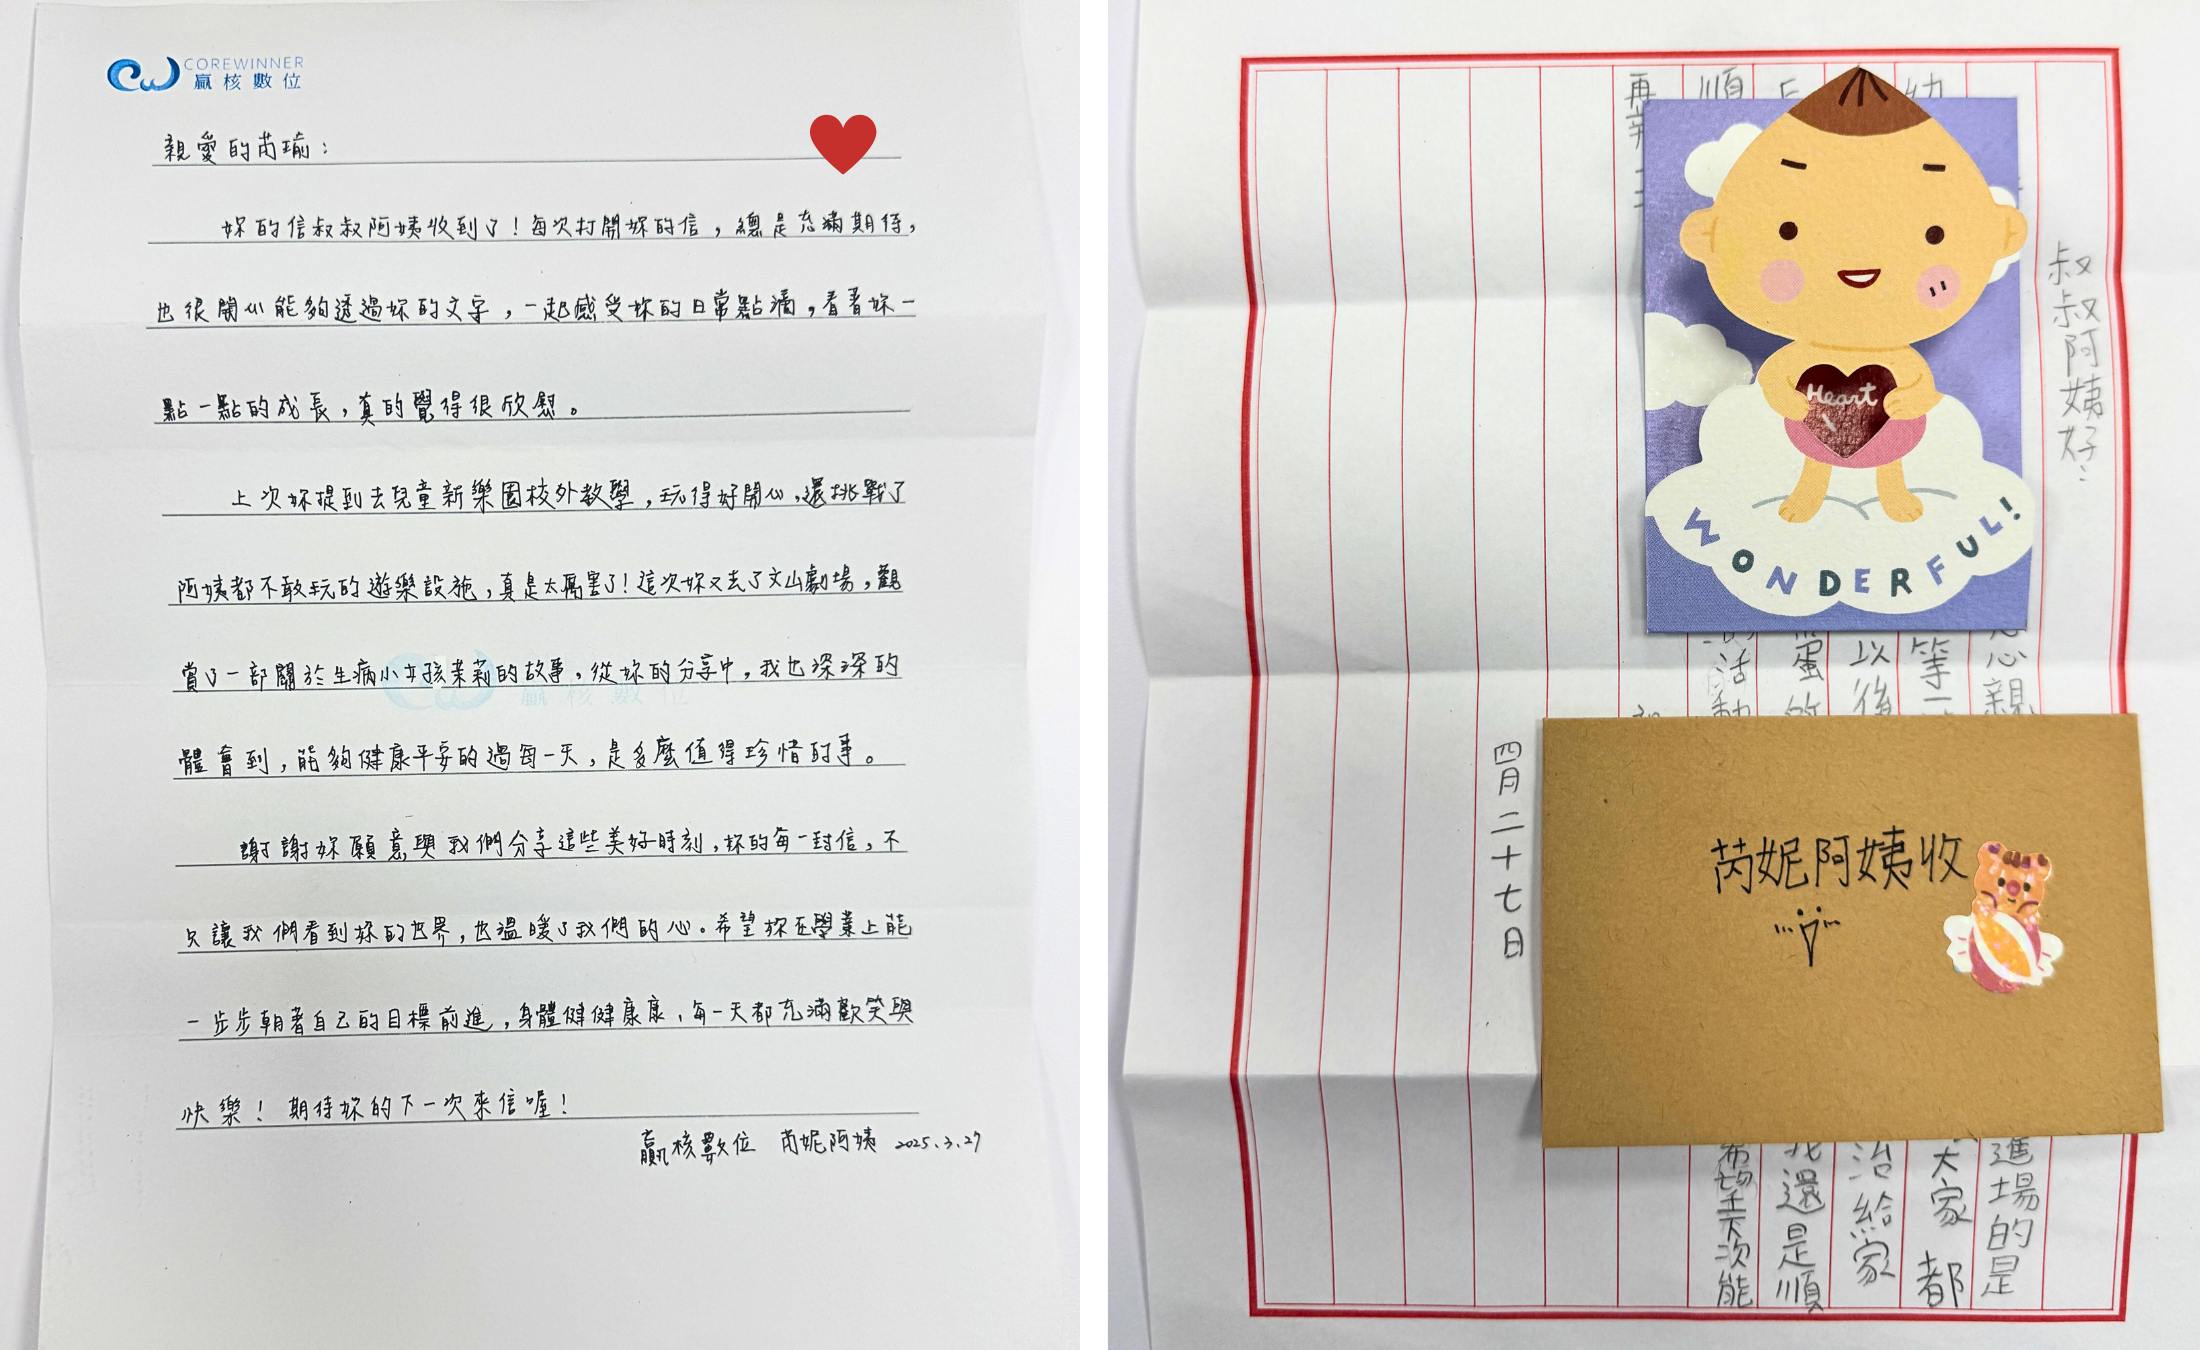 COREWINNER
贏核數位
親愛的芮瑜：
妳的信叔叔阿姨收到了！每次打開妳的信，總是充滿期待，
也很開心能夠透過妳的文字，一起感受妳的日常點滴，看著妳一
點一點的成長，真的覺得很欣慰。
上次妳提到去兒童新樂園校外教學，玩得好開心，還挑戰了
阿姨都不敢玩的遊樂設施，真是太厲害了！這次妳又去了文山劇場，觀
賞了一部關於生病小女孩茉莉的故事，從妳的分享中，我也深深的
體會到，能夠健康平安的過每一天，是多麼值得珍惜的事。
謝謝妳願意與我們分享這些美好時刻，妳的每一封信，不
只讓我們看到妳的世界，也溫暖了我們的心。希望妳在學業上能
一步步朝著自己的目標前進，身體健健康康，每一天都充滿歡笑與
快樂！期待妳的下一次來信喔！
贏核數位 芮妮阿姨 2025.3.27
贏核數位
叔叔阿姨好：
心親
進場的是
幼
等一
大家都
以後
治給家
蛋的
我還是順
順
活動
希望下次能
再
四月二十七日
Heart
WONDERFUL!
芮妮阿姨收